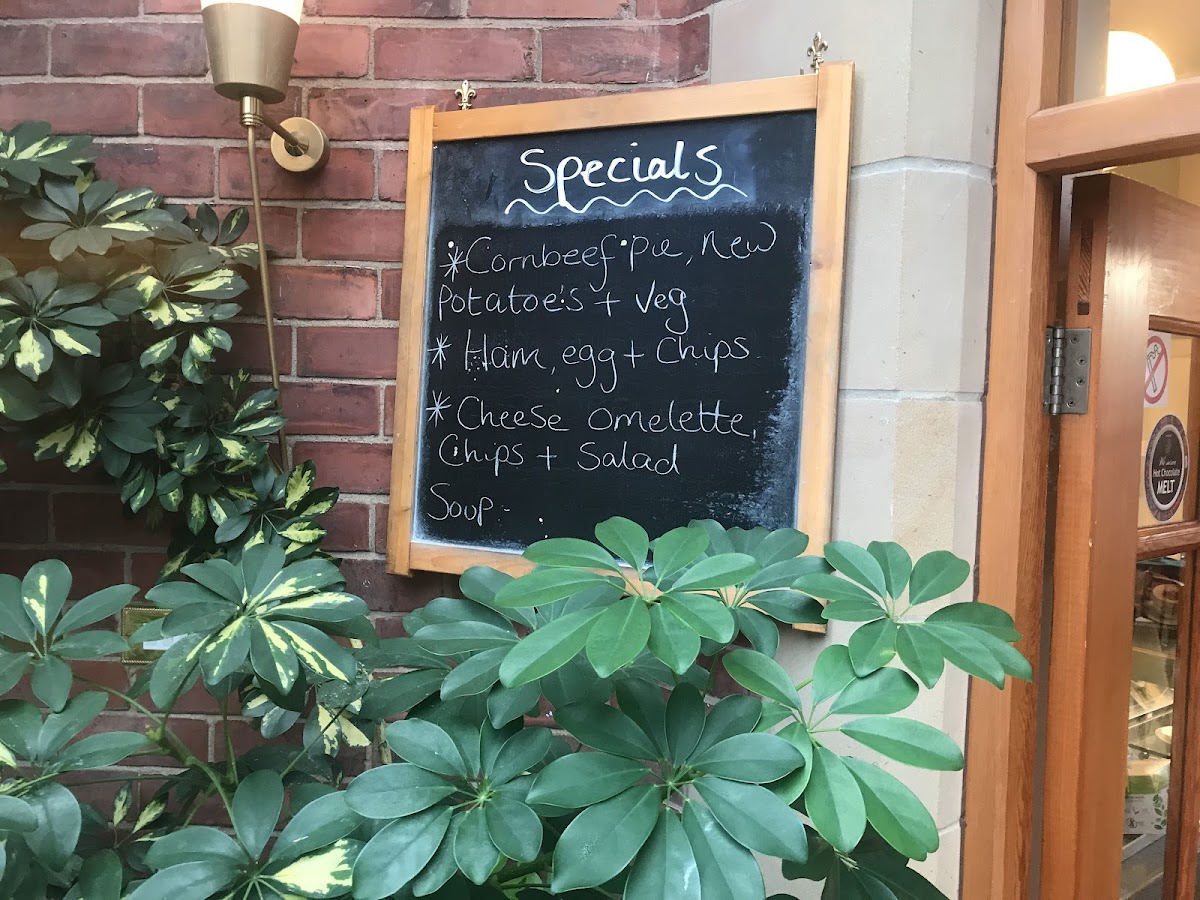 Specials
*Cornbeef Pie, New
Potatoe's + Veg
* Ham, egg + Chips
* Cheese omelette,
Chips + Salad
Soup -
Hot Chocolate
MELT